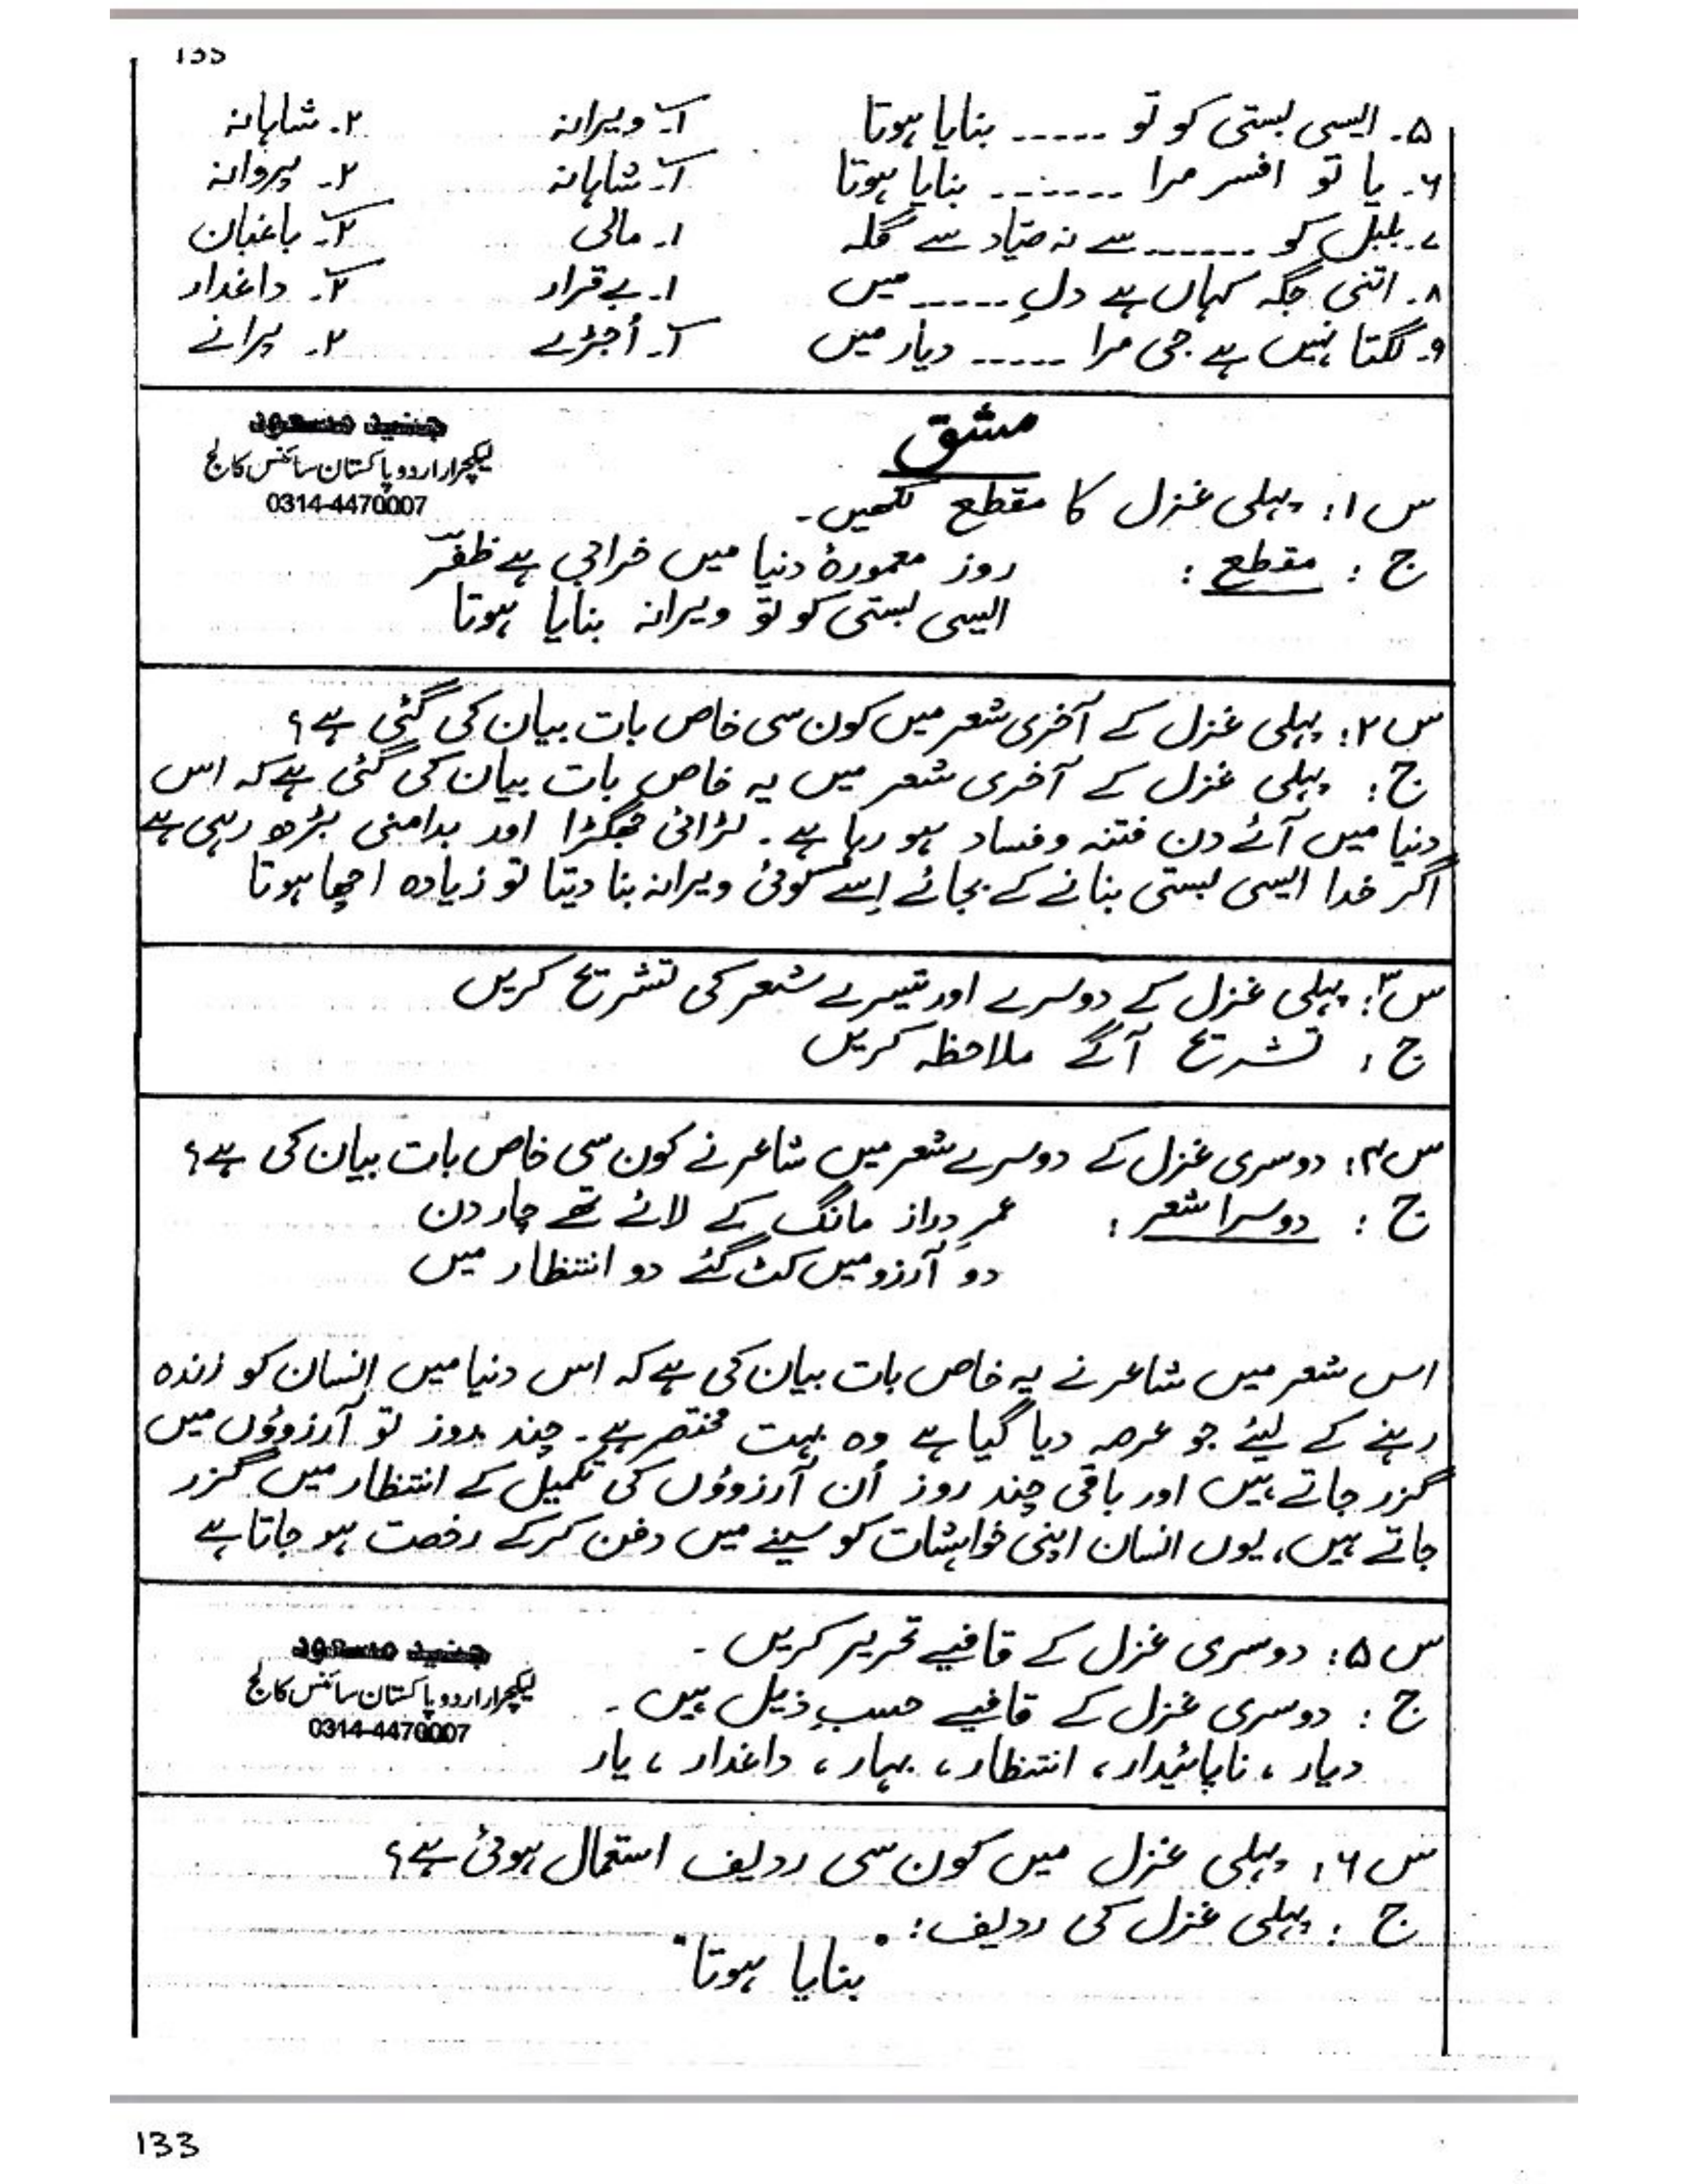 133
۵۔ ایسی بستی کو تو ----- بنایا ہوتا ۱۔ ویرانہ ۲۔ شاہانہ
۶۔ یا تو افسر مرا ------- بنایا ہوتا ۱۔ شاہانہ ۲۔ پروانہ
۷۔ بلبل کو ------ سے نہ صیّاد سے گلہ ۱۔ مالی ۲۔ باغبان
۸۔ اتنی جگہ کہاں ہے دلِ ----- میں ۱۔ بے قرار ۲۔ داغدار
۹۔ لگتا نہیں ہے جی مرا ----- دیار میں ۱۔ اُجڑے ۲۔ پرانے
مشق
جنید مسعود
لیکچرار اردو پاکستان سائنس کالج
0314-4470007
س ۱: پہلی غزل کا مقطع لکھیں۔
ج : مقطع : روز معمورۂ دنیا میں خرابی ہے ظفرؔ
ایسی بستی کو تو ویرانہ بنایا ہوتا
س ۲: پہلی غزل کے آخری شعر میں کون سی خاص بات بیان کی گئی ہے؟
ج: پہلی غزل کے آخری شعر میں یہ خاص بات بیان کی گئی ہے کہ اس
دنیا میں آئے دن فتنہ و فساد ہو رہا ہے۔ لڑائی جھگڑا اور بدامنی بڑھ رہی ہے
اگر خدا ایسی بستی بنانے کے بجائے اِسے کوئی ویرانہ بنا دیتا تو زیادہ اچھا ہوتا
س ۳: پہلی غزل کے دوسرے اور تیسرے شعر کی تشریح کریں
ج : تشریح آگے ملاحظہ کریں
س ۴: دوسری غزل کے دوسرے شعر میں شاعر نے کون سی خاص بات بیان کی ہے؟
ج : دوسرا شعر : عمرِ دراز مانگ کے لائے تھے چار دن
دو آرزو میں کٹ گئے دو انتظار میں
اس شعر میں شاعر نے یہ خاص بات بیان کی ہے کہ اس دنیا میں انسان کو زندہ
رہنے کے لیئے جو عرصہ دیا گیا ہے وہ بہت مختصر ہے۔ چند روز تو آرزوؤں میں
گزر جاتے ہیں اور باقی چند روز اُن آرزوؤں کی تکمیل کے انتظار میں گزر
جاتے ہیں، یوں انسان اپنی خواہشات کو سینے میں دفن کرکے رخصت ہو جاتا ہے
س ۵: دوسری غزل کے قافیے تحریر کریں۔
جنید مسعود
لیکچرار اردو پاکستان سائنس کالج
0314-4470007
ج : دوسری غزل کے قافیے حسبِ ذیل ہیں۔
دیار ، ناپائیدار، انتظار، بہار، داغدار ، یار
س ۶: پہلی غزل میں کون سی ردیف استعمال ہوئی ہے؟
ج : پہلی غزل کی ردیف :
"بنایا ہوتا"
133